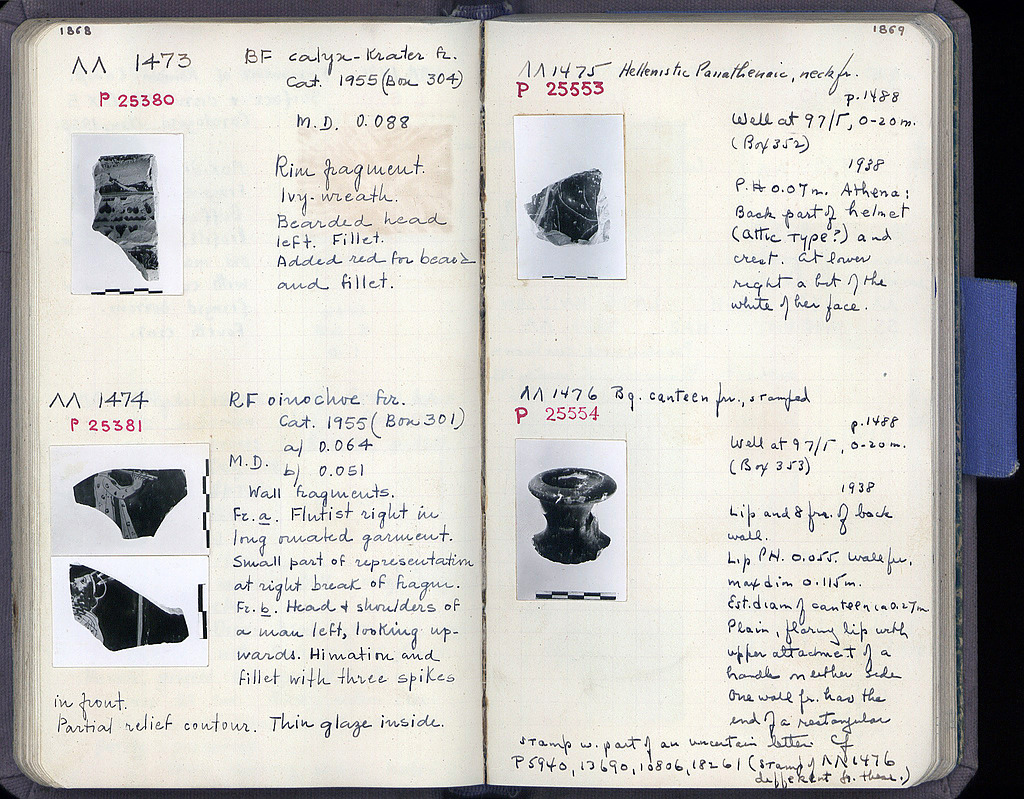 1868
ΛΛ 1473 BF calyx-Krater fr.
Cat. 1955 (Box 304)
P 25380
M.D. 0.088
Rim fragment.
Ivy-wreath.
Bearded head
left. Fillet.
Added red for beard
and fillet.
ΛΛ 1474 RF oinochoe frr.
P 25381
Cat. 1955 (Box 301)
a) 0.064
M.D.
b) 0.051
Wall fragments.
Fr. a. Flutist right in
long ornated garment.
Small part of representation
at right break of fragm.
Fr. b. Head & shoulders of
a man left, looking up-
wards. Himation and
fillet with three spikes
in front.
Partial relief contour. Thin glaze inside.
1869
ΛΛ 1475 Hellenistic Panathenaic, neck fr.
P 25553
p. 1488
Well at 97/ , 0-20 m.
(Box 352)
1938
P.H 0.07 m. Athena:
Back part of helmet
(Attic Type?) and
crest. At lower
right a bit of the
white of her face.
ΛΛ 1476 Bg. canteen frr., stamped
P 25554
p. 1488
Well at 97/ , 0-20 m.
(Box 353)
1938
Lip and 8 frs. of back
wall.
Lip P.H. 0.055. wall fr.,
max dim 0.115 m.
Est. diam of canteen ca 0.27 m
Plain, flaring lip with
upper attachment of a
handle on either side
One wall fr. has the
end of a rectangular
stamp w. part of an uncertain letter Cf
P 5940, 13690, 10806, 18261 (stamp of ΛΛ 1476
different fr. these.)